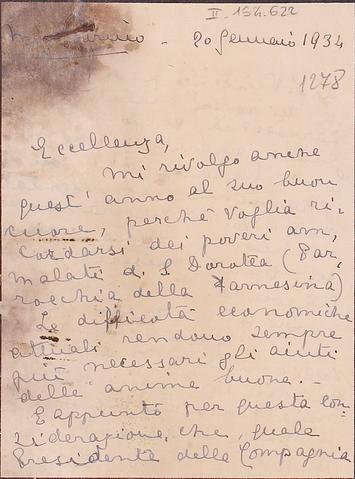 II. 154.622
20 Gennaio 1934
1278
Eccellenza,
mi rivolgo anche
quest' anno al suo buon
cuore, perchè voglia ri-
cordarsi dei poveri am,
malati di S. Dorotea (Par,
rocchia della Farnesina)
Le difficoltà economiche
attuali rendono sempre
più necessari gli aiuti
delle anime buone. -
E appunto per questa con,
siderazione che, quale
Presidente della Compagnia